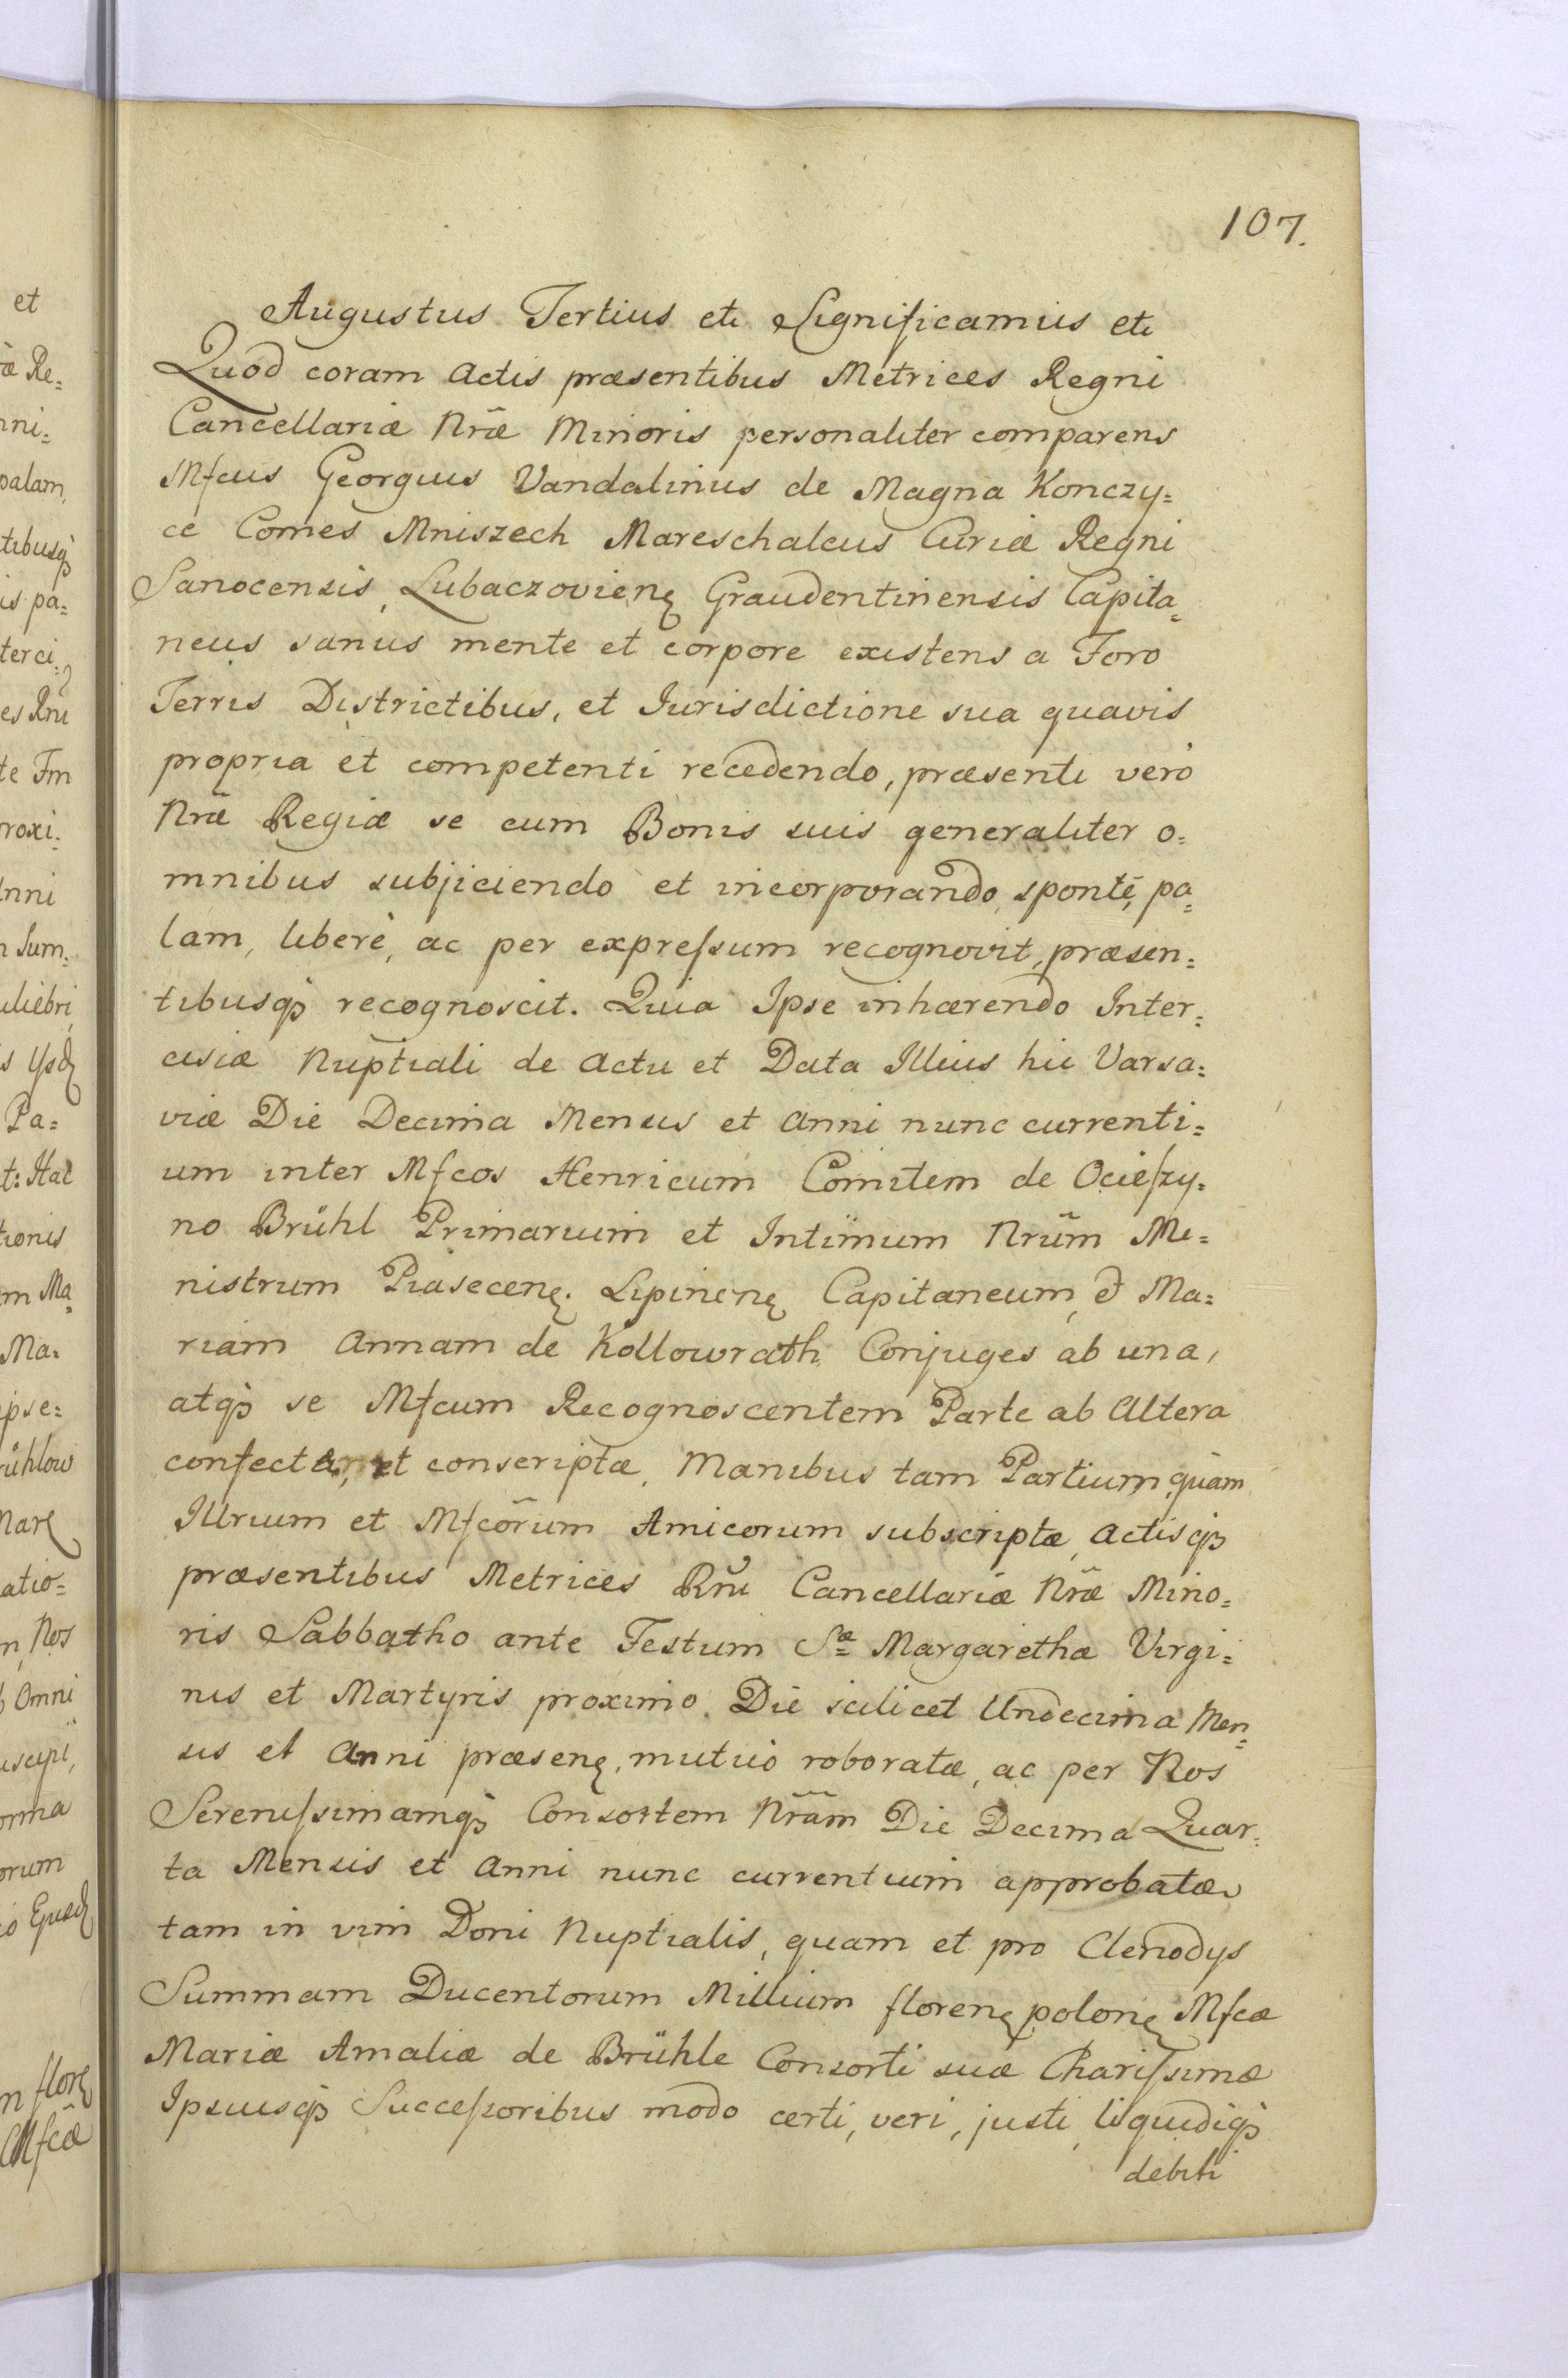 107.
Augustus Tertius etc Significamus etc
Quod coram Actis præsentibus Metrices Regni
Cancellariæ Nrã̃e Minoris personaliter comparens
Mfcus Georgius Vandalinus de Magna Konczy=
ce Comes Mniszech Mareschalcus Curiæ Regni
Sanocensis, Lubaczovienę Graudentinensis Capita=
neus sanus mente et corpore existens a Foro
Terris Districtibus, et Jurisdictione sua quavis
propria et competenti recedendo, præsenti verò
Nræ Regiæ se cum Bonis suis generaliter o=
mnibus subjiciendo et incorporando, spontè, pa=
lam, liberè, ac per expreſsum recognovit, præsen=
tibusq; recognoscit. Quia Ipse inhærendo Inter=
cisiæ Nuptiali de Actu et Data Illius hic Varsa=
viæ Die Decima Mensis et Anni nunc currenti=
um inter Mfcos Henricum Comitem de Ocieſzy=
no Brühl Primarium et Intimum Nrũm Mi=
nistrum Piasecenę. Lipinenę Capitaneum, & Ma=
riam Annam de Kollowrath Conjuges ab una,
atq; se Mfcum Recognoscentem Parte ab Altera
confectæ, et conscriptæ, Manibus tam Partium, quàm
Illrium et Mfcõrum Amicorum subscriptæ, Actisq;
præsentibus Metrices Rñi Cancellariæ Nræ Mino=
ris Sabbatho ante Festum Sæ Margarethæ Virgi=
nis et Martyris proximo. Die scilicet Undecima Men=
sis et Anni præsenę, mutuò roboratæ, ac per Nos
Sereniſsimamq; Consortem Nrãm Die Decima Quar=
ta Mensis et Anni nunc currentium approbatæ,
tam in vim Doni Nuptialis, quam et pro Clenodys
Summam Ducentorum Millium florenę polonę Mfcæ
Mariæ Amaliæ de Brühle Consorti suæ Chariſsimæ
Ipsiusq; Succeſsoribus modo certi, veri, justi, liquidiq;
debiti
et
æ Re=
nni=
palam,
tibusq;
is pa=
terci
es Rni
te Fm
roxi=
Anni
Sum=
uliebri
Pa=
tionis
m Ma=
Ma=
ipse=
rühlow
atio=
n, Nos
Omni
uscipi,
orma
orum
n florę
Mfcæ